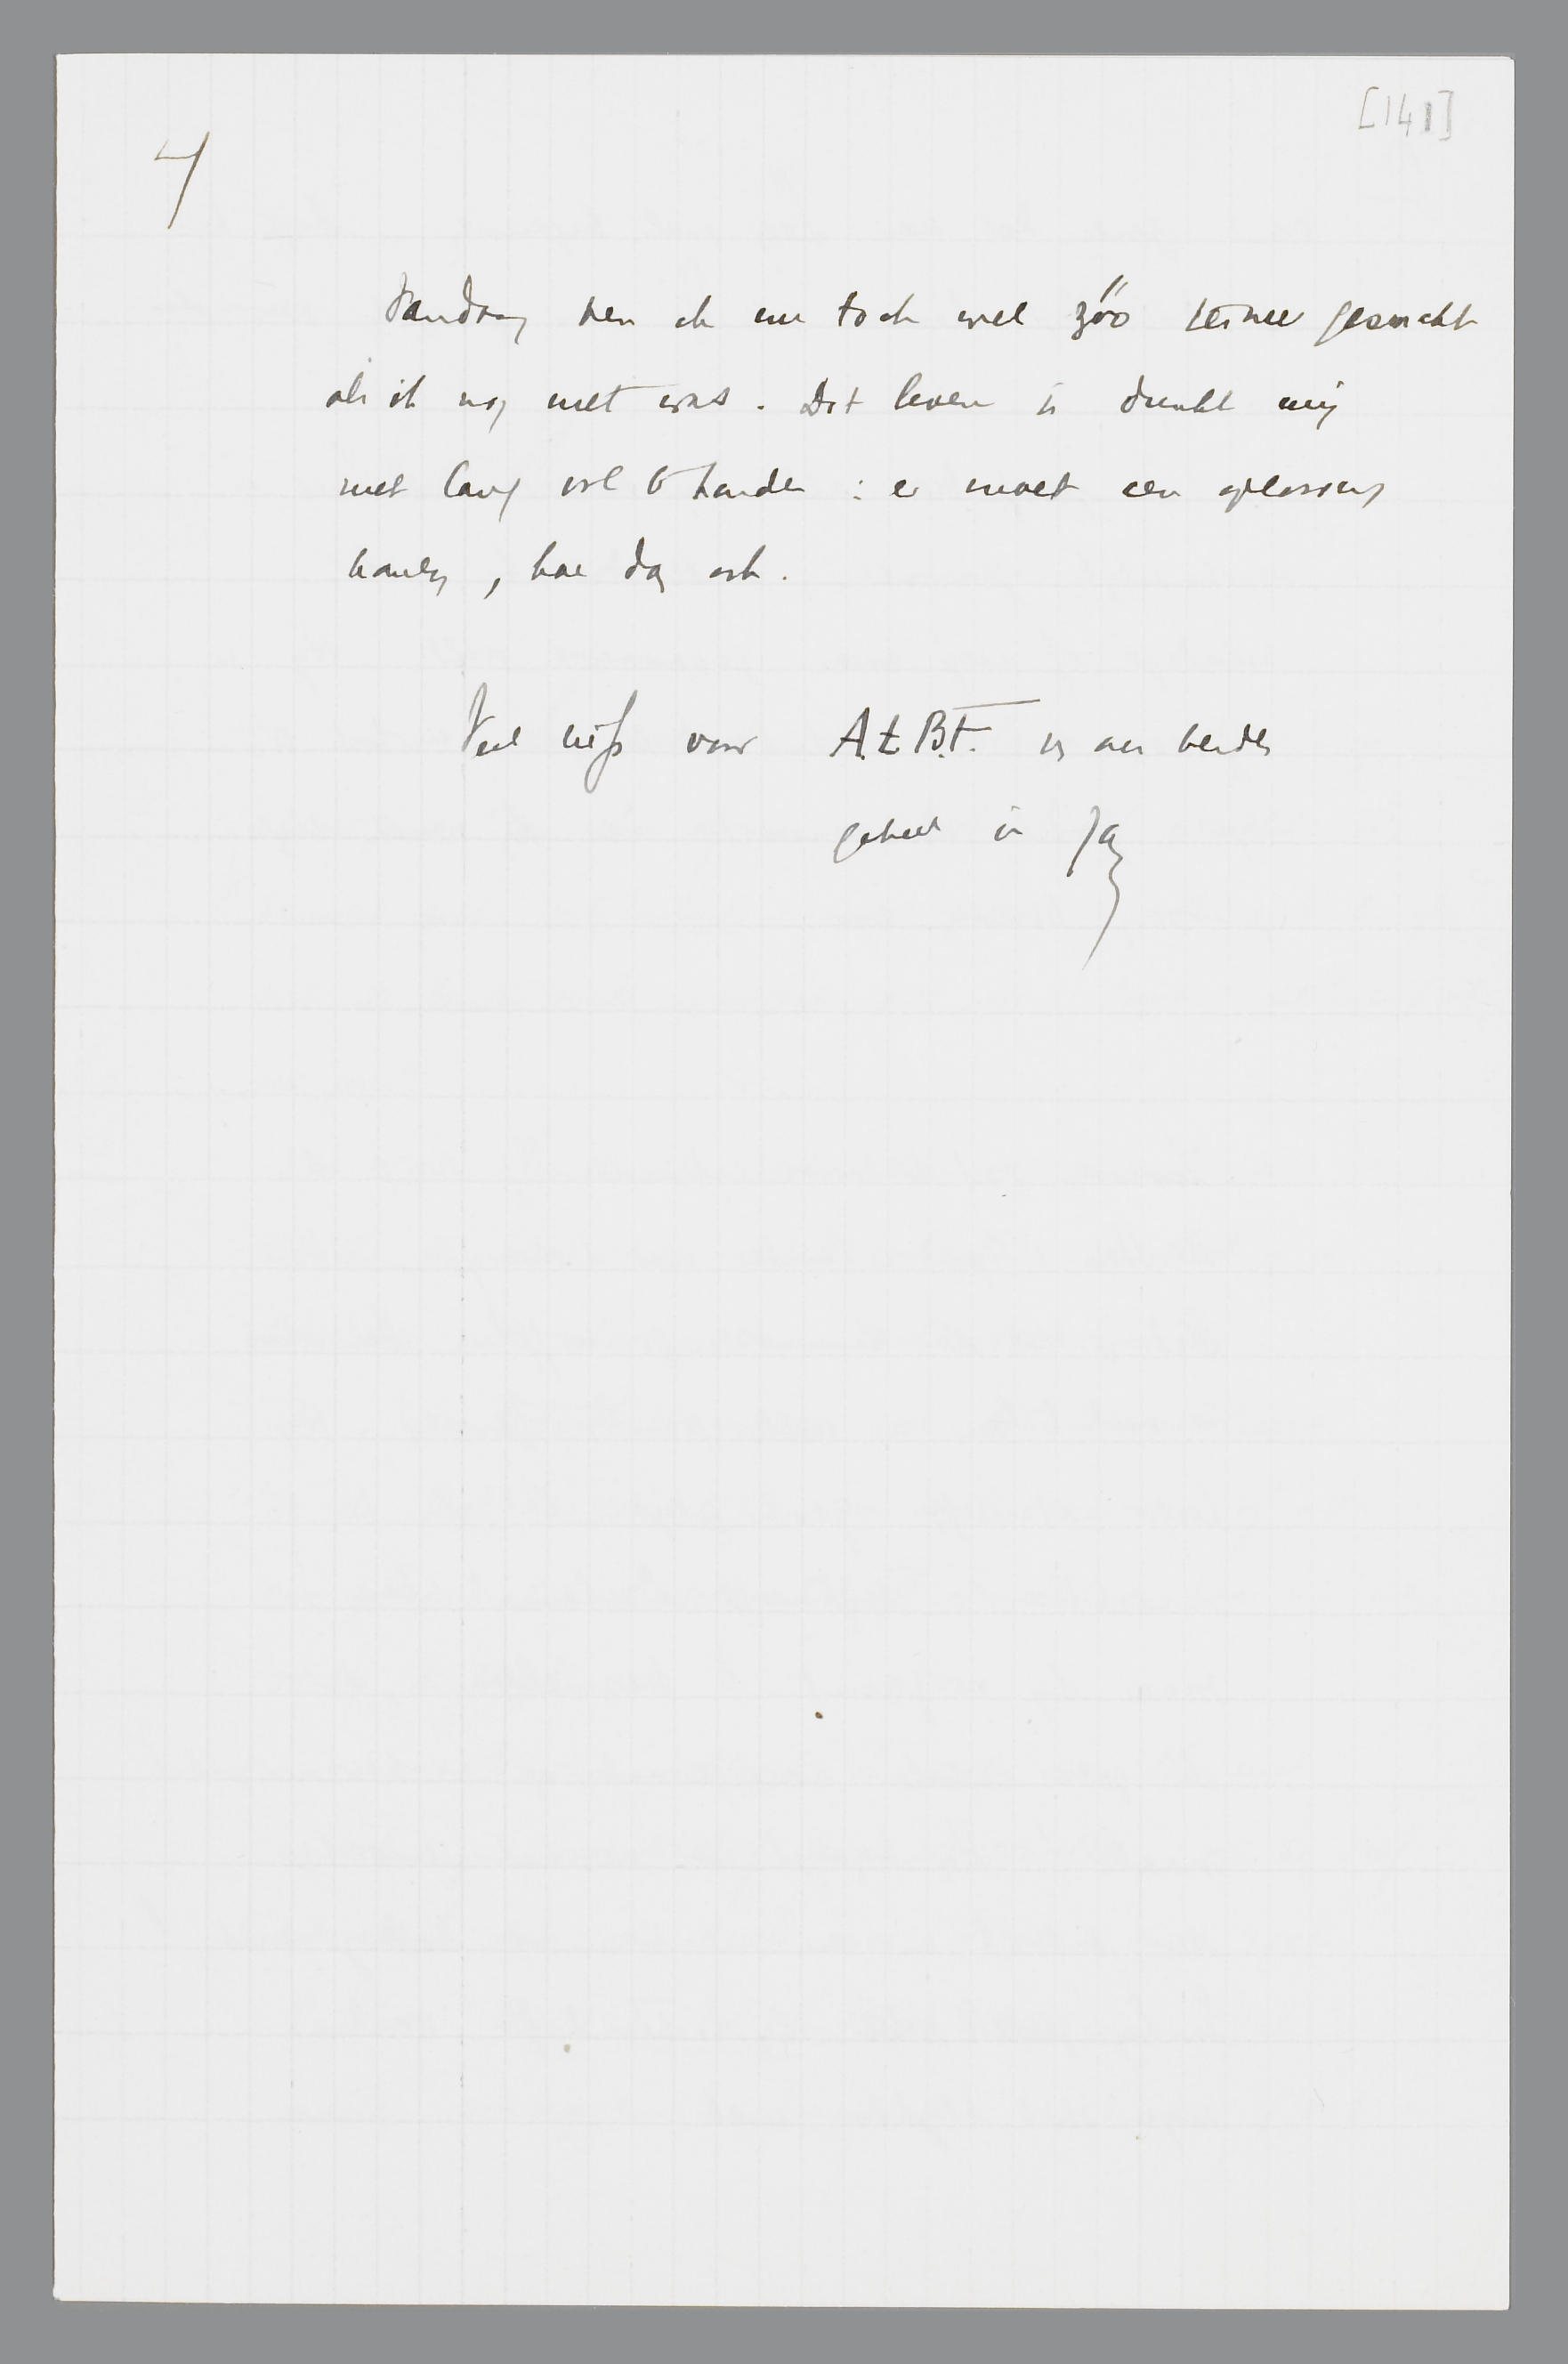 [141]
4
Vandaag ben ik nu toch wel zóó terneer gesmakt
als ik nog niet was. Dit leven is dunkt mij
niet lang vol te houden : er moet een oplossing
komen, hoe dan ook.
Veel liefs voor A. & B.F. en aan beiden
geheel je